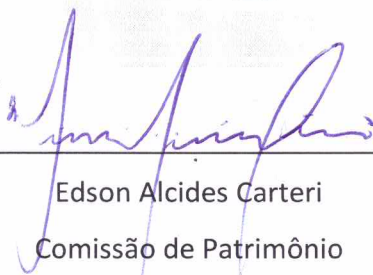 Edson Alcides Carteri
Comissão de Patrimônio